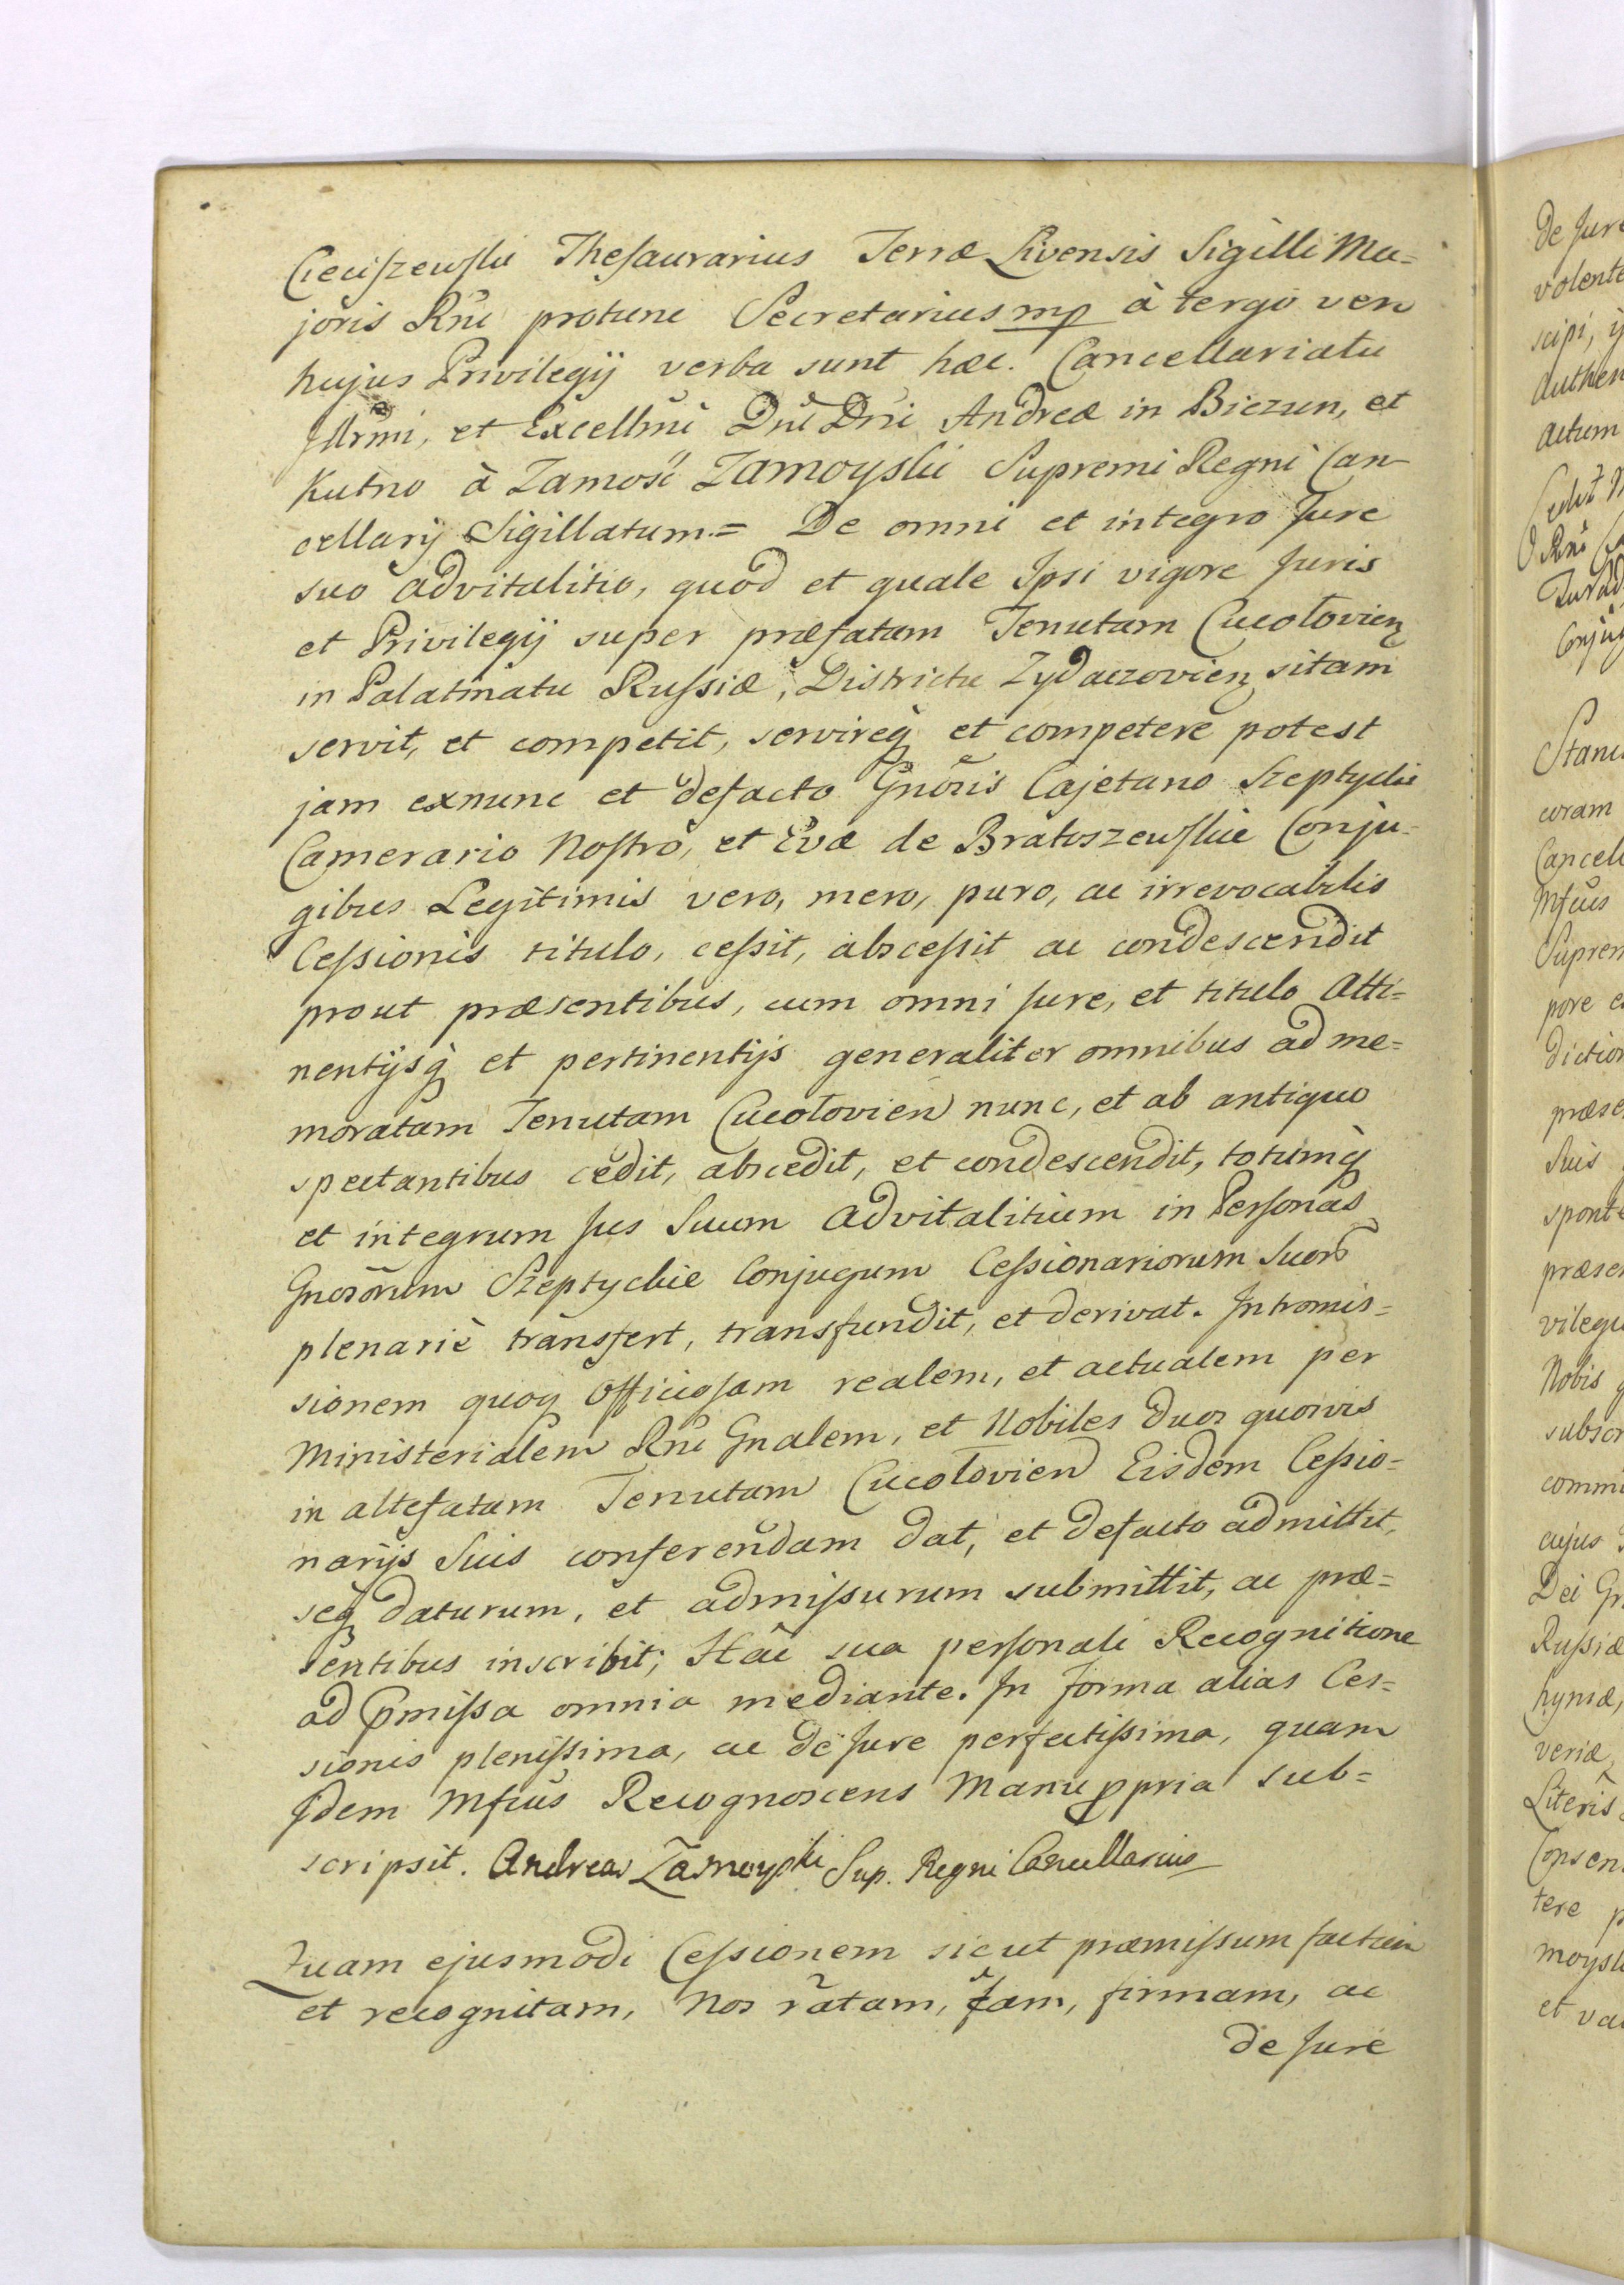 Cieciszewski Thesaurarius Terræ Livensis Sigilli Ma=
joris Rni protunc Secretarius mp à tergo vero
hujus Privilegij verba sunt hæc. Cancellariatu
Illrmi, et Excellmi Dni Dni Andreæ in Biezun, et
Kutno à Zamość Zamoyski Supremi Regni Can
cellarij Sigillatum.= De omni et integro Jure
suo advitalitio, quod et quale Ipsi vigore Juris
et Privilegij super præfatam Tenutam Cucołovien
in Palatinatu Russiæ, Districtu Zydaczovien sitam
servit, et competit, servireq et competere potest
jam exnunc et defacto Gnoris Cajetano Szeptycki
Camerario Nostro, et Evæ de Bratoszewskie Conju=
gibus Legitimis vero, mero, puro, ac irrevocabilis
Cessionis titulo, cessit, abscessit ac condescendit
prout præsentibus, cum omni Jure, et titulo Atti=
nentijsq et pertinentijs generaliter omnibus ad me=
moratam Tenutam Cucołovien nunc, et ab antiquo
spectantibus cedit, abscedit, et condescendit, totumq
et integrum Jus Suum Advitalitium in Personas
Gnosorum Szeptyckie Conjugum Cessionariorum Suor
plenariè transfert, transfundit, et derivat. Intromis=
sionem quoq Officiosam realem, et actualem per
Ministerialem Rni Gnalem, et Nobiles duos quosvis
in altefatam Tenutam Cucołovien Eisdem Cessio=
narijs Suis conferendam dat, et defacto admittit,
seq daturum, et admissurum submittit, ac præ=
sentibus inscribit; Hac sua personali Recognitione
ad pmissa omnia mediante. In forma alias Ces=
sionis plenissima, ac de Jure perfectissima, quam
Idem Mfcus Recognoscens Manu ppria sub=
scripsit. Andreas Zamoyski Sup. Regni Cancellarius
Quam ejusmodi Cessionem sicut præmissum factam
et recognitam, Nos ratam, gtam, firmam, ac
de Jure